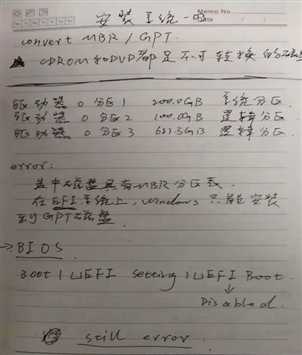 安装系统
convert MBR / GPT
CDROM和DVD都是不可转换的
驱动器 0 分区1 200.0GB 系统分区
驱动器 0 分区2 100.0GB 逻辑分区
驱动器 0 分区3 631.5GB 逻辑分区
error:
选中磁盘具有MBR分区表.
在EFI系统上, windows 只能安装
到GPT磁盘.
→ BIOS
Boot | UEFI setting | UEFI Boot
↓
Disabled.
still error.